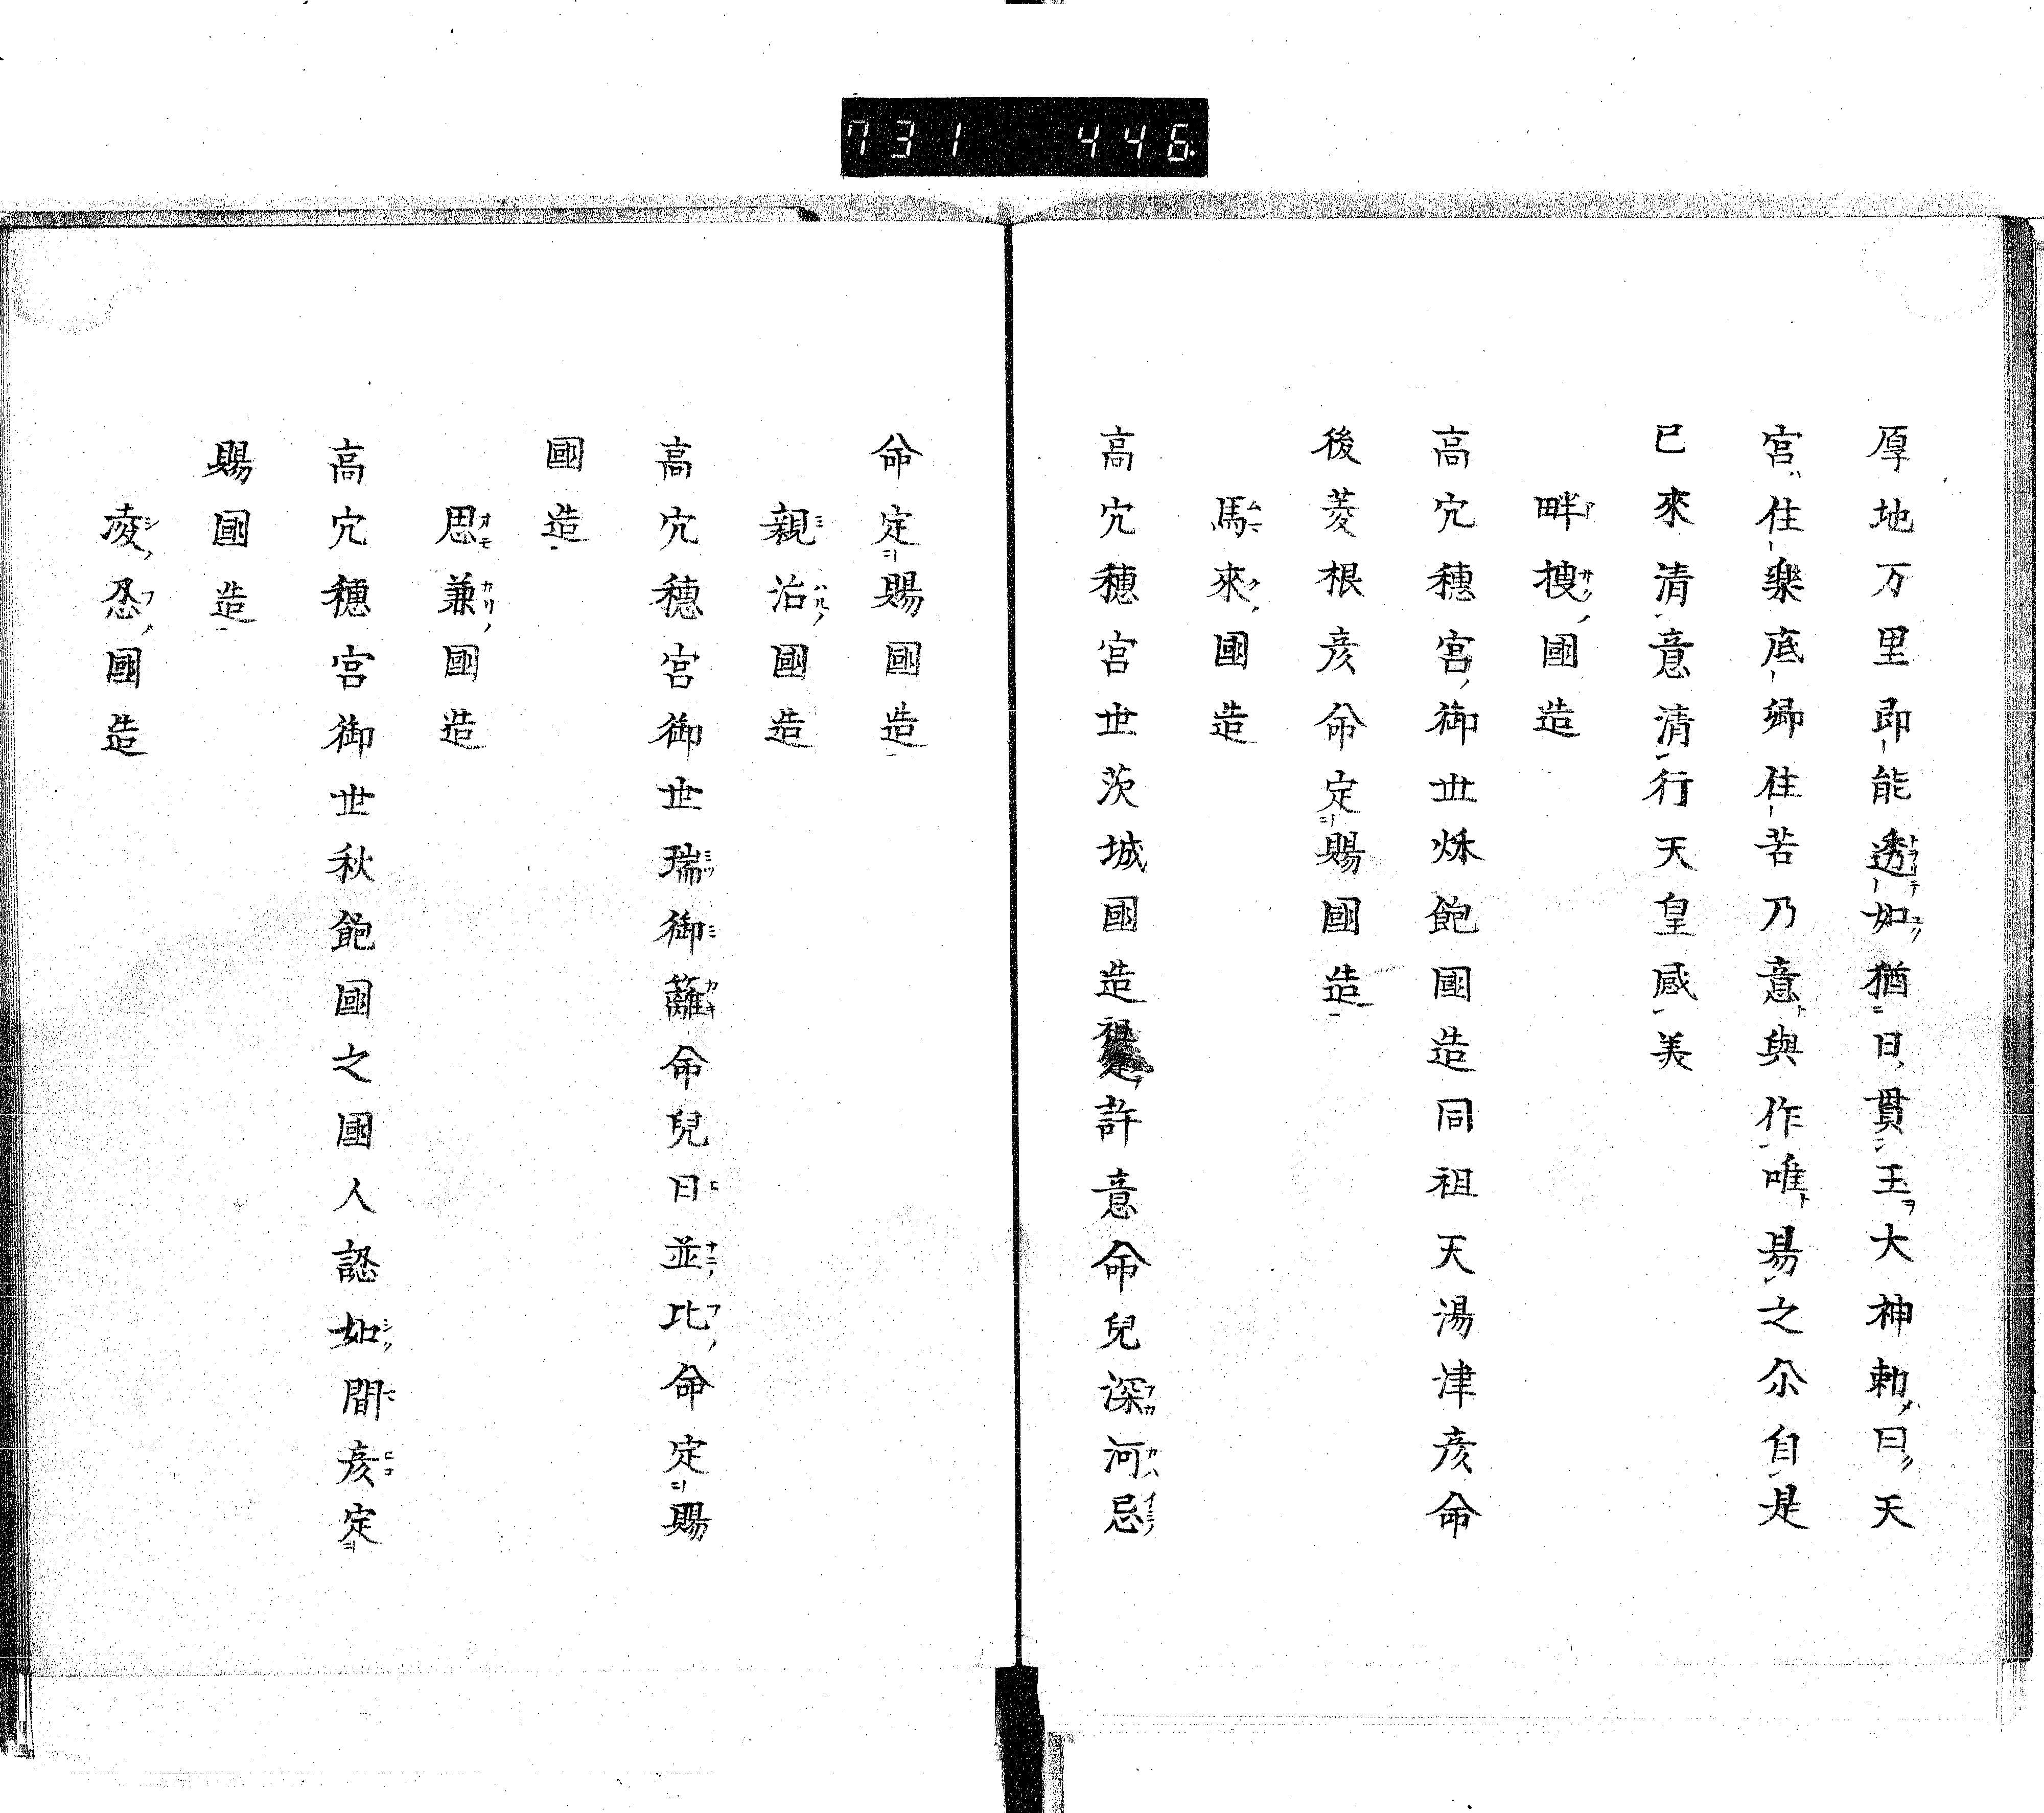 731 446
厚地万里即能透如猶日貫玉大神勅曰天
宮住樂底卿住苦乃意與作唯易之尒自是
已來清意清行天皇感美
畔搜國造
高穴穗宮御世秌飽國造同祖天湯津彦命
後菱根彦命定賜國造
馬來國造
高穴穗宮世茨城國造祖許意命兒深河忌
命定賜國造
親治國造
高穴穗宮御世瑞御籬命兒日並比命定賜
國造
思兼國造
高穴穗宮御世秋飽國之國人認如間彦定
賜國造
凌忍國造